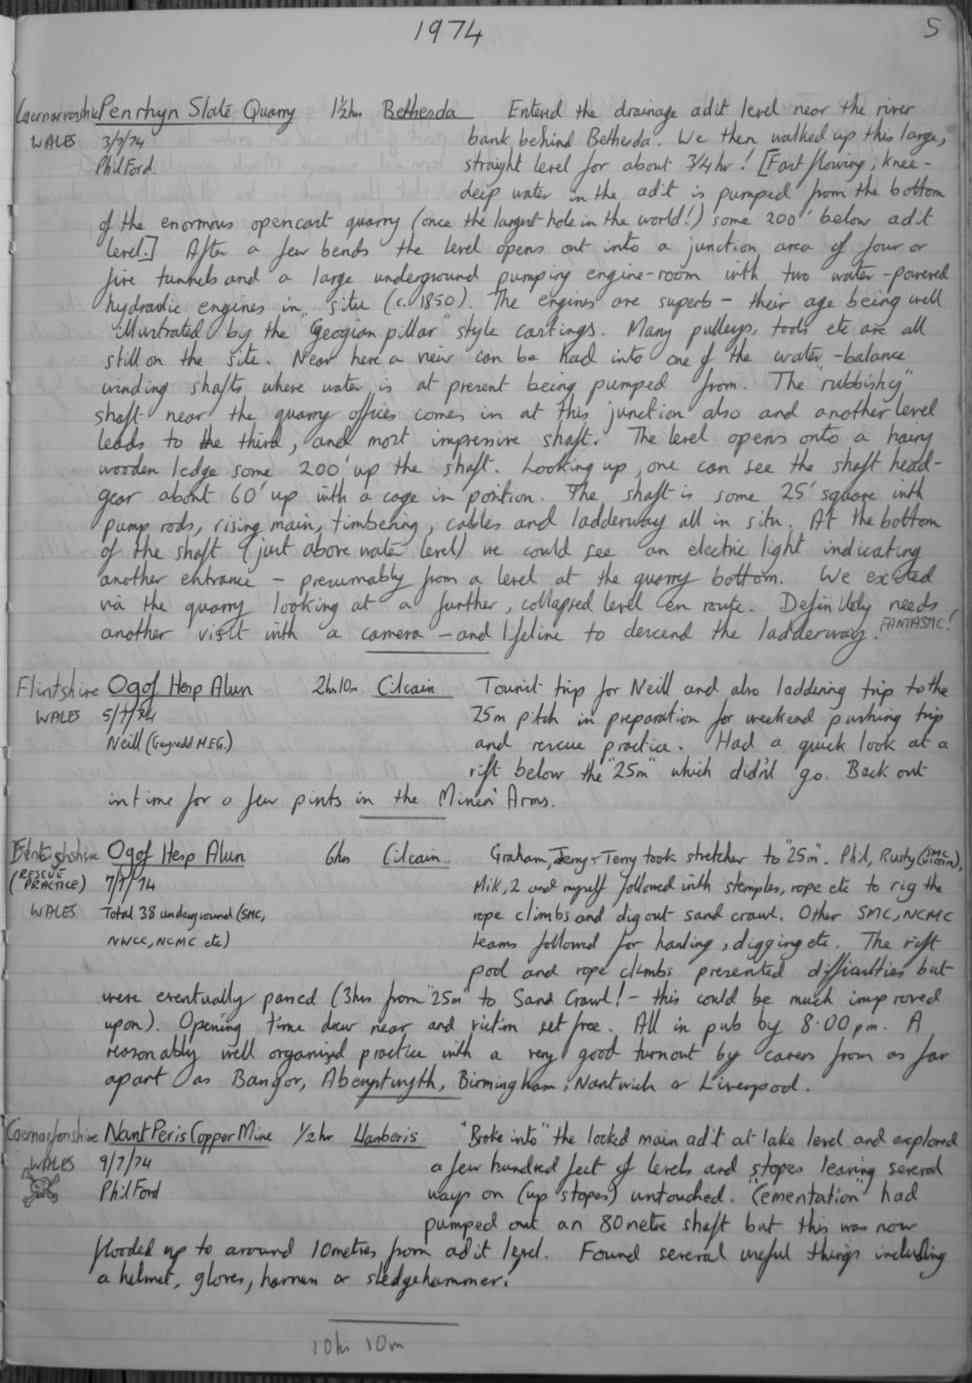 1974
5
Caernarvonshire Penrhyn Slate Quarry 1½hr Bethesda Entered the drainage adit level near the river
WALES 3/7/74 bank behind Bethesda. We then walked up this large,
Phil Ford. straight level for about 3/4 hr! [Fast flowing, knee-
deep water in the adit is pumped from the bottom
of the enormous opencast quarry (once the largest hole in the world!) some 200' below adit
level.] After a few bends the level opens out into a junction area of four or
five tunnels and a large underground pumping engine-room with two water-powered
hydraulic engines in situ (c. 1850). The engines are superb - their age being well
illustrated by the "Geogian pillar" style castings. Many pulleys, tools etc are all
still on the site. Near here a view can be had into one of the water-balance
winding shafts where water is at present being pumped from. The "rubbishy"
shaft near the quarry offices comes in at this junction also and another level
leads to the third, and most impressive shaft. The level opens onto a hairy
wooden ledge some 200' up the shaft. Looking up, one can see the shaft head-
gear about 60' up with a cage in position. The shaft is some 25' square with
pump rods, rising main, timbering, cables and ladderway all in situ. At the bottom
of the shaft (just above water level) we could see an electric light indicating
another entrance - presumably from a level at the quarry bottom. We exited
via the quarry looking at a further, collapsed level en route. Definitely needs
another visit with a camera - and lifeline to descend the ladderway. FANTASTIC!
Flintshire Ogof Hesp Alun 2hr 10m Cilcain Tourist trip for Neill and also laddering trip to the
WALES 5/7/74 25m pitch in preparation for weekend pushing trip
Neill (Gwynedd M.E.G.) and rescue practice. Had a quick look at a
rift below the "25m" which didn't go. Back out
in time for a few pints in the Miners' Arms.
Ogof Hesp Alun 6hr Cilcain Graham, Jerry + Terry took stretcher to "25m". Phil, Rusty
(RESCUE PRACTICE) 7/7/74 Mik, 2 and myself followed with stemples, rope etc to rig the
WALES Total 38 underground (SMC, rope climbs and dig out sand crawl. Other SMC, NCMC
NWCC, NCMC etc) teams followed for hauling, digging etc. The rift
pool and rope climbs presented difficulties but
were eventually passed (3hrs from "25m" to Sand Crawl! - this could be much improved
upon). Opening time drew near and victim set free. All in pub by 8.00 pm. A
reasonably well organized practice with a very good turnout by cavers from as far
apart as Bangor, Aberystwyth, Birmingham, Nantwich & Liverpool.
Caernarfonshire Nant Peris Copper Mine ½hr Llanberis "Broke into" the locked main adit at lake level and explored
WALES 9/7/74 a few hundred feet of levels and stopes leaving several
Phil Ford ways on (up stopes) untouched. "Cementation" had
pumped out an 80 metre shaft but this was now
flooded up to around 10 metres from adit level. Found several useful things including
a helmet, gloves, harness & sledgehammer.
10hr 10m